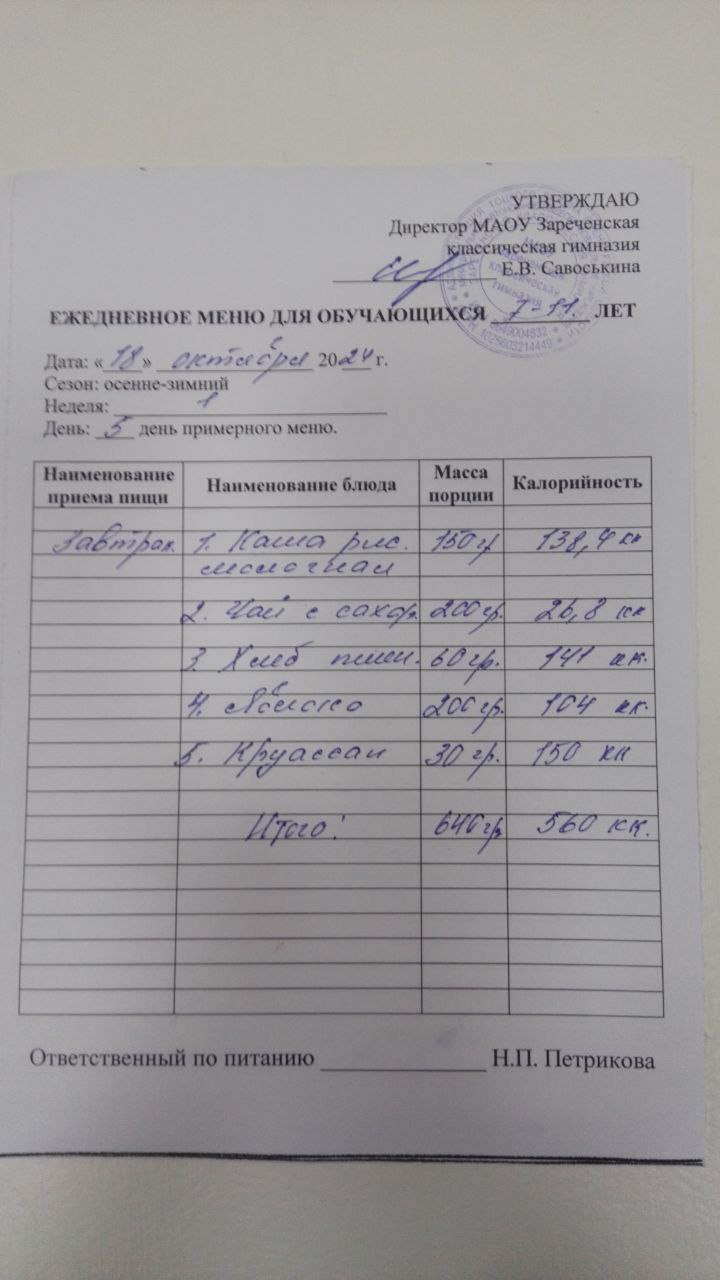 УТВЕРЖДАЮ
Директор МАОУ Зареченская
классическая гимназия
Е.В. Савоськина
ЕЖЕДНЕВНОЕ МЕНЮ ДЛЯ ОБУЧАЮЩИХСЯ 7-11 ЛЕТ
Дата: «18» октября 2024 г.
Сезон: осенне-зимний
Неделя: 1
День: 5 день примерного меню.
Наименование приема пищи Наименование блюда Масса порции Калорийность
Завтрак 1. Каша рис. 150 гр 138,4 кк
молочная
2. Чай с сахар. 200 гр. 26,8 кк
3. Хлеб пшен. 60 гр. 141 кк.
4. Яблоко 200 гр. 104 кк.
5. Круассан 30 гр. 150 кк
Итого! 640 гр 560 кк.
Ответственный по питанию Н.П. Петрикова